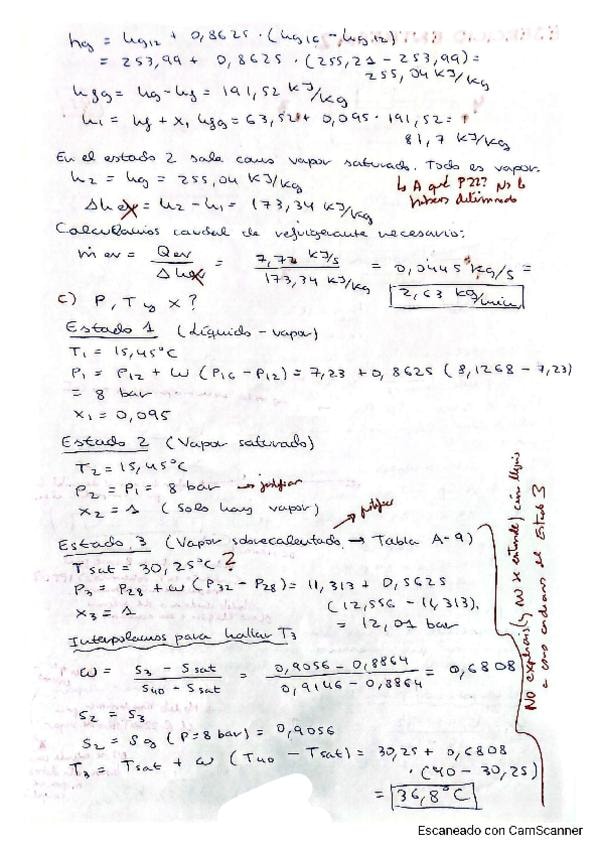 hg = hg12 + 0,8625 · (hg16 - hg12)
= 253,99 + 0,8625 · (255,21 - 253,99) =
255,04 kJ/kg
hfg = hg - hf = 191,52 kJ/kg
h1 = hf + x1 hfg = 63,52 + 0,095 · 191,52 =
81,7 kJ/kg
En el estado 2 sale como vapor saturado. Todo es vapor.
h2 = hg = 255,04 kJ/kg
↳ A qué P22? No lo
habeis determinado
Δhex = h2 - h1 = 173,34 kJ/kg
Calculamos caudal de refrigerante necesario:
ṁ ev = Qev / Δhex = 7,72 kJ/s / 173,34 kJ/kg = 0,0445 kg/s =
2,63 kg/min
c) P, T y x?
Estado 1 (Líquido - vapor)
T1 = 15,45°C
P1 = P12 + ω (P16 - P12) = 7,23 + 0,8625 (8,1268 - 7,23)
= 8 bar
x1 = 0,095
Estado 2 (Vapor saturado)
T2 = 15,45°C
P2 = P1 = 8 bar → justificar
x2 = 1 (Solo hay vapor)
→ justificar
Estado 3 (Vapor sobrecalentado → Tabla A-9)
Tsat = 30,25°C ?
P3 = P28 + ω (P32 - P28) = 11,313 + 0,5625
(12,556 - 11,313).
x3 = 1
= 12,01 bar
Interpolamos para hallar T3
ω = s3 - ssat / s40 - ssat = 0,9056 - 0,8864 / 0,9146 - 0,8864 = 0,6808
s2 = s3
s2 = sg (P = 8 bar) = 0,9056
T3 = Tsat + ω (T40 - Tsat) = 30,25 + 0,6808
· (40 - 30,25)
= 36,8°C
No explicais (y NO se entiende) cómo llegais
a como el Estado 3
Escaneado con CamScanner